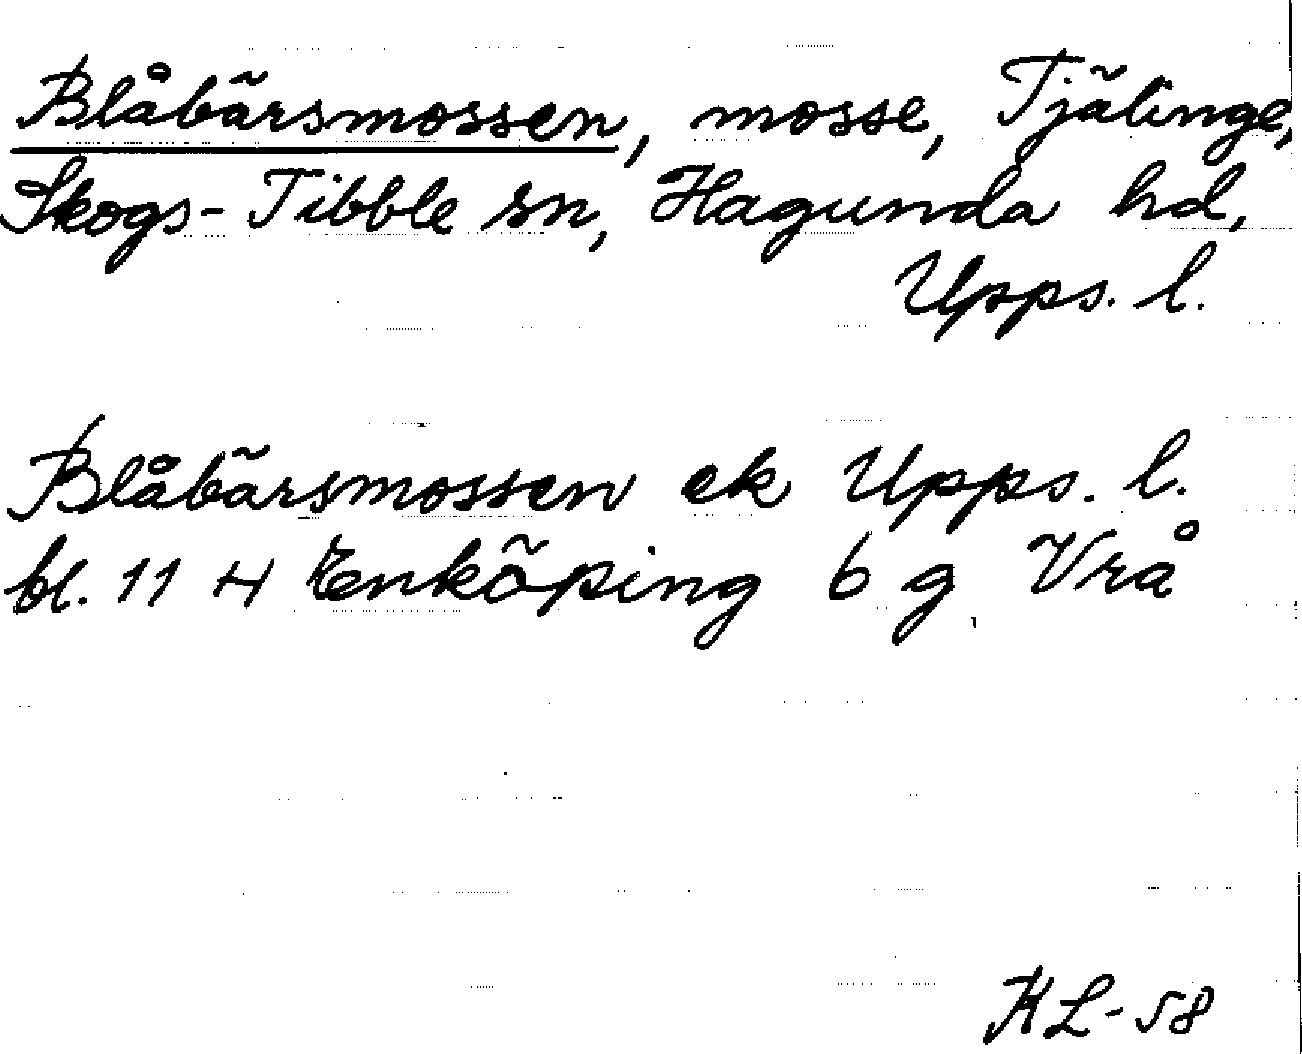 Blåbärsmossen, mosse, Tjälinge,
Skogs-Tibble sn, Hagunda hd,
Upps. l.
Blåbärsmossen ek Upps. l.
bl. 11 H Enköping 6 g Vrå
HL-58